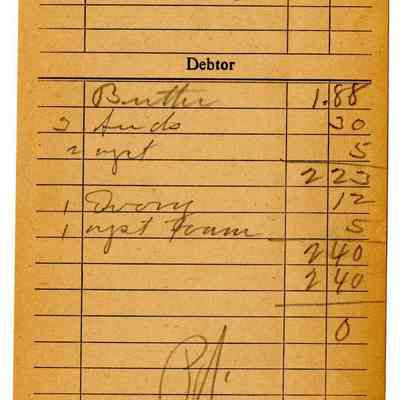 Debtor
Butter 1.88
3 Suds 30
2 yst 5
2 23
1 Ivory 12
1 yst Foam 5
2 40
2 40
0
Pd.